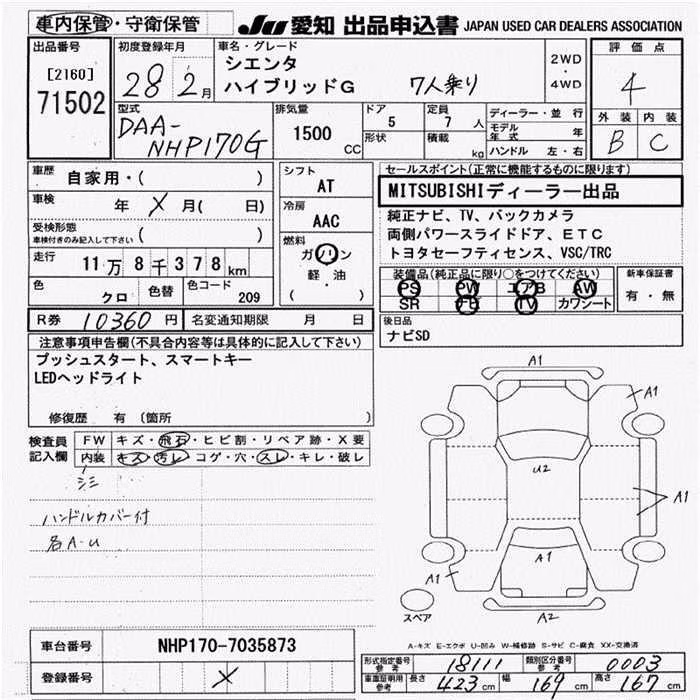 車内保管・守衛保管
JU 愛知 出品申込書 JAPAN USED CAR DEALERS ASSOCIATION
出品番号
[2160]
71502
初度登録年月
28 2月
車名・グレード
シエンタ
ハイブリッドG 7人乗り
2WD
・
4WD
評価点
4
外装 内装
B C
型式
DAA-
NHP170G
排気量
1500
CC
ドア
5
形状
定員
7 人
積載
kg
ディーラー・並行
モデル年式 年
ハンドル 左・右
車歴
自家用・( )
車検
年 X 月( 日)
受検形態
車検付きのみ記入して下さい ( )
走行
11万8千378km
色
クロ
色替
色コード
209
シフト
AT
冷房
AAC
燃料
ガソリン
軽・油
( )
セールスポイント(正常に機能するものに限ります)
MITSUBISHIディーラー出品
純正ナビ、TV、バックカメラ
両側パワースライドドア、ETC
トヨタセーフティセンス、VSC/TRC
装備品(純正品に限り○をつけてください)
PS PW エアB AW
SR ナビ TV カワシート
新車保証書
有・無
R券 10360 円 名変通知期限 月 日
後日品
ナビSD
注意事項申告欄(不具合内容等は具体的に記入して下さい)
プッシュスタート、スマートキー
LEDヘッドライト
修復歴 有 (箇所 )
検査員
記入欄
FW キズ・飛石・ヒビ割・リペア跡・X要
内装 キズ・汚レ・コゲ・穴・スレ・キレ・破レ
シミ
ハンドルカバー付
各A・U
A1
A1
U2
A1
A1
A1
A1
A2
スペア
A-キズ E-エクボ U-凹み W-補修跡 S-サビ C-腐食 XX-交換済
車台番号 NHP170-7035873
登録番号 X
形式指定番号 参考 18111 類別区分番号 参考 0003
車庫証明用 参考 長さ 423 cm 幅 169 cm 高さ 167 cm